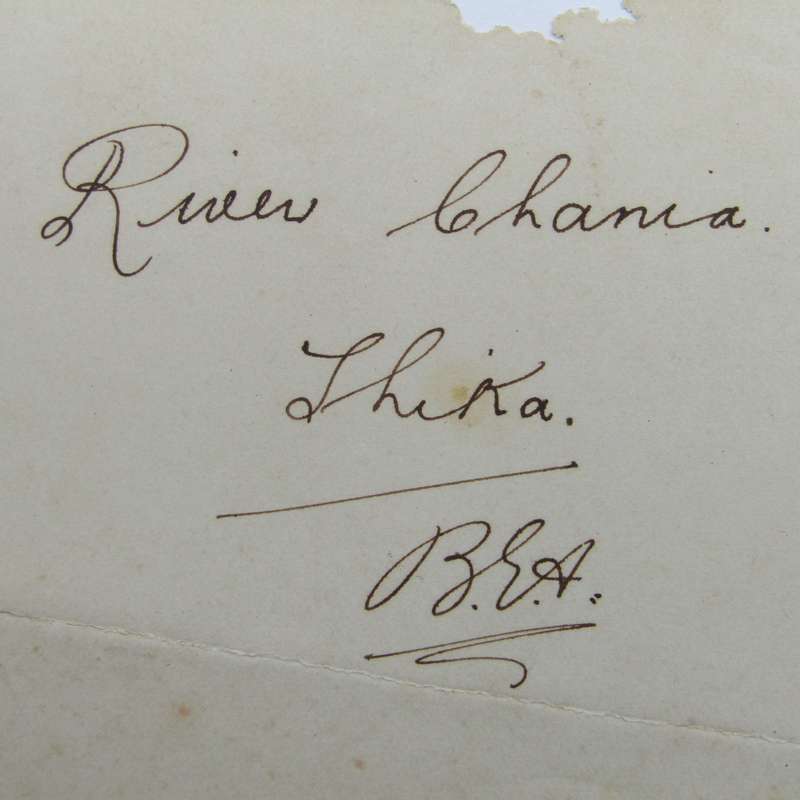 River Chania.
Thika.
B.E.A.